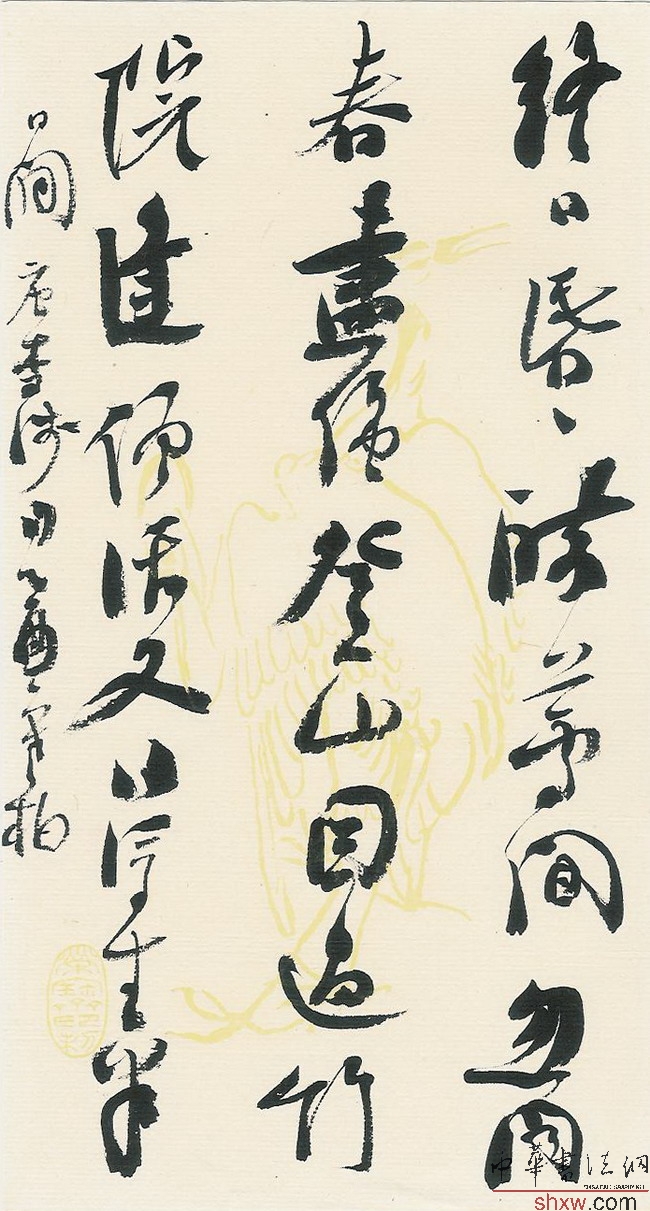 終日昏昏醉夢間忽聞
春盡強登山因過竹
院逢僧話又得浮生半
日閒 唐李涉
中華書法網
shxw.com